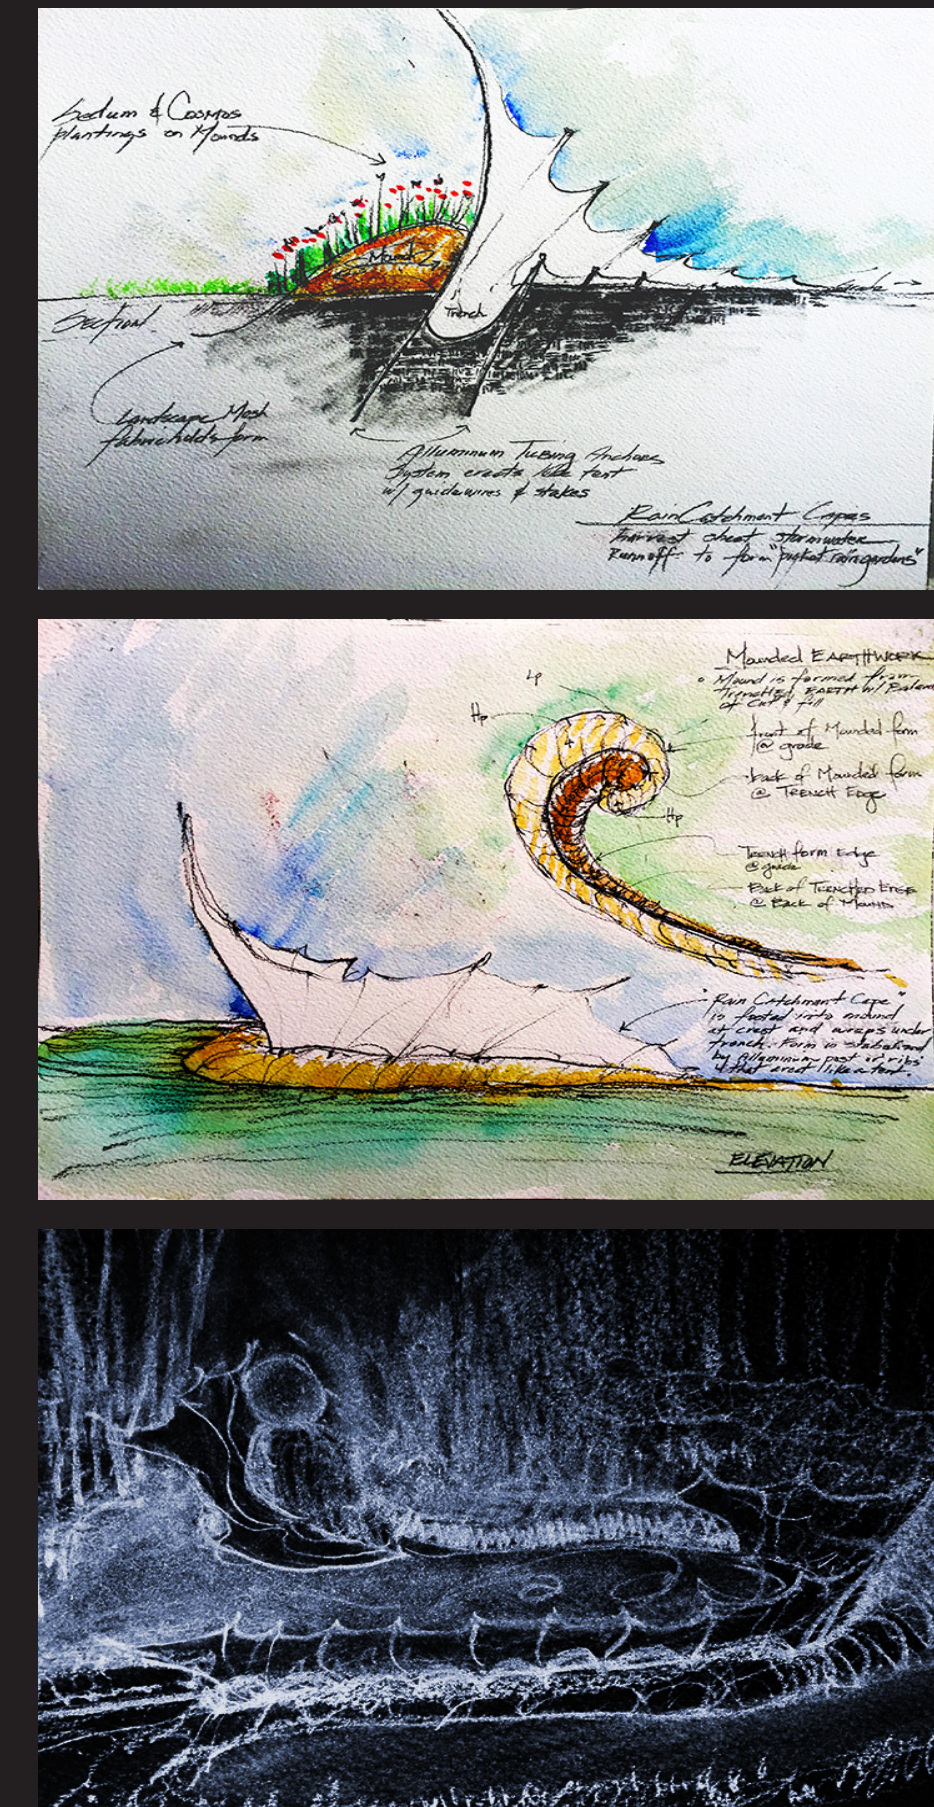 Sedum & Cosmos
plantings on Mounds
Mound
Trench
Grade
Section
Landscape Mesh
fabric holds form
Alluminum Tubing Anchors
System erects like tent
w/ guidewires & stakes
Rain Catchment Capes
harvest sheet stormwater
Runoff to form "pocket raingardens"
Mounded EARTHWORK
Mound is formed from
Trenched EARTH w/ Balance
of Cut & fill
Lp
Hp
front of Mounded form
@ grade
back of Mounded form
@ TRENCH Edge
Hp
TRENCH form Edge
@ grade
Back of TRENCHED EDGE
@ Back of MOUND
"Rain Catchment Cape"
is footed into mound
at crest and wraps under
trench. Form is stabalized
by Alluminum post or ribs
that erect like a tent.
ELEVATION